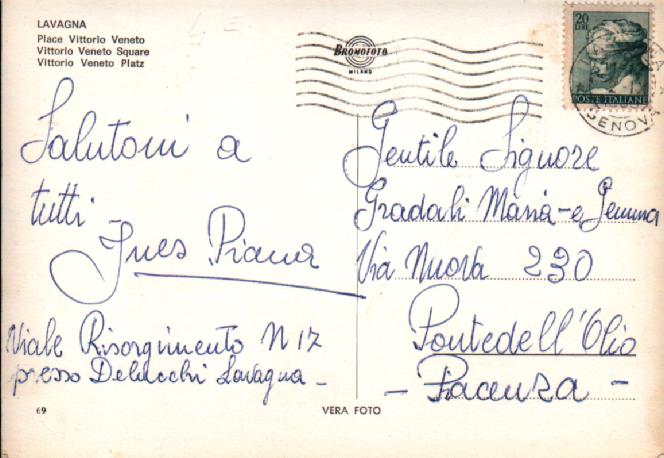 LAVAGNA
Place Vittorio Veneto
Vittorio Veneto Square
Vittorio Veneto Platz
BROMOFOTO
MILANO
20
LIRE
POSTE ITALIANE
GENOVA
Salutoni a
tutti
Ines Piana
Viale Risorgimento N 17
presso Delucchi Lavagna -
Gentile Signore
Gradali Maria - e Gemma
Via Nuova 230
Pontedell'Olio
- Piacenza -
69
VERA FOTO